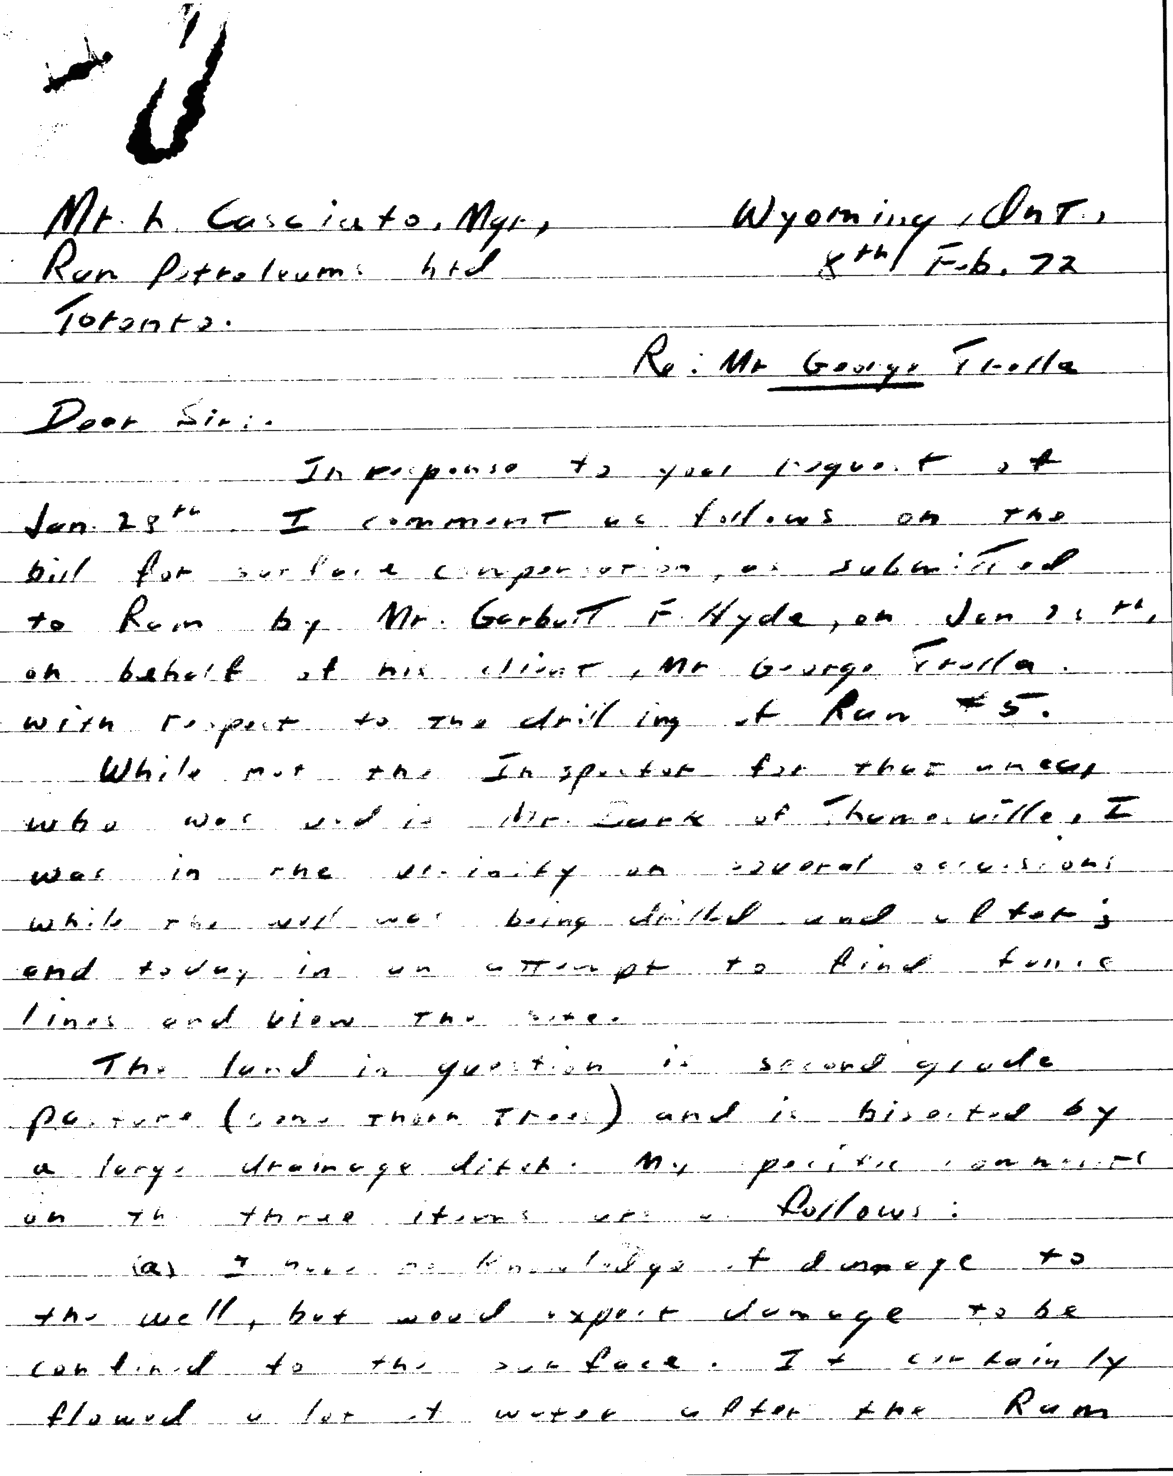 Mr. L. Casciato, Mgr,
Wyoming, Ont.,
Ram Petroleums Ltd
8th Feb. 72
Toronto.
Re: Mr George Trolla
Dear Sir:.
In response to your request of
Jan. 28th I comment as follows on the
bill for surface compensation, as submitted
to Ram by Mr. Garbutt F. Hyde, on Jan th,
on behalf of his client, Mr George Trolla.
with respect to the drilling of Ram #5.
While not the Inspector for that area,
who was and is Mr. of Thamesville, I
was in the vicinity on several occasions
while the well was being drilled and after;
and today in an attempt to find fence
lines and view the site.
The land in question is second grade
pasture (some Thorn Trees) and is bisected by
a large drainage ditch. My specific comments
on the three items are as follows:
(a) I have no knowledge of damage to
the well, but would expect damage to be
confined to the surface. It certainly
flowed a lot of water after the Ram